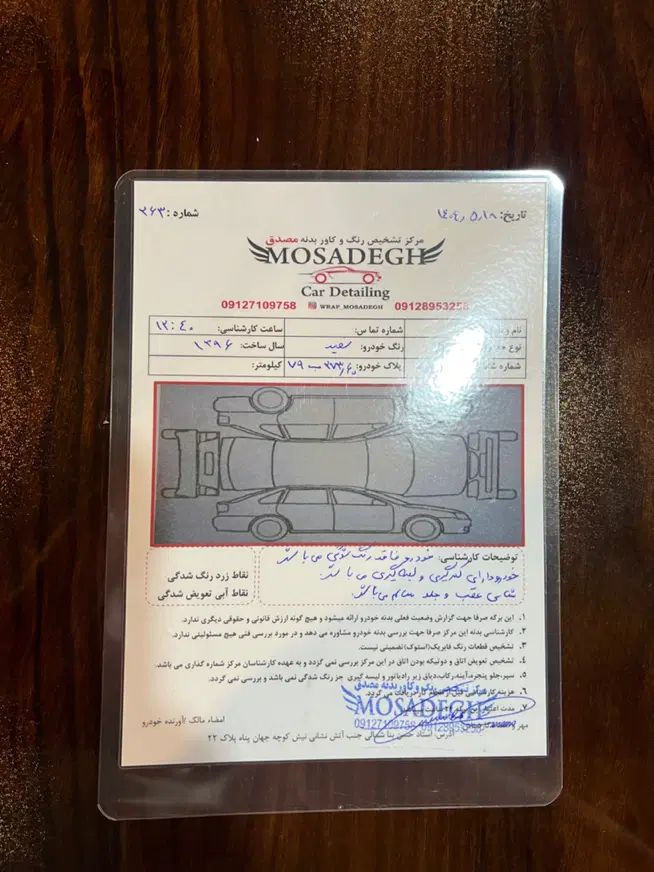 تاریخ: ۱۴۰۴/۵/۱۸
شماره: ۳۶۳
مرکز تشخیص رنگ و کاور بدنه مصدق
MOSADEGH
Car Detailing
09127109758 WRAP_MOSADEGH 09128953258
نام و شماره تماس: ساعت کارشناسی: ۱۲:۴۰
نوع رنگ خودرو: سفید سال ساخت: ۱۳۹۶
شماره پلاک خودرو: کیلومتر:
توضیحات کارشناسی: خودرو فاقد رنگ شدگی می باشد
خودرو دارای لکه گیری و لیسه گیری می باشد
شاسی عقب و جلو سالم می باشد
نقاط زرد رنگ شدگی
نقاط آبی تعویض شدگی
۱. این برگه صرفا جهت گزارش وضعیت فعلی بدنه خودرو ارائه میشود و هیچ گونه ارزش قانونی و حقوقی دیگری ندارد.
۲. کارشناسی بدنه این مرکز صرفا جهت بررسی بدنه خودرو مشاوره می دهد و در مورد بررسی فنی هیچ مسئولیتی ندارد.
۳. تشخیص قطعات رنگ فابریک(استوک)تضمینی نیست.
۴. تشخیص تعویض اتاق و دوتیکه بودن اتاق در این مرکز بررسی نمی گردد و به عهده کارشناسان مرکز شماره گذاری می باشد.
۵. سپر،جلو پنجره،آینه،رکاب،دیاق زیر رادیاتور و لیسه گیری جز رنگ شدگی نمی باشد و بررسی نمی گردد.
۶. هزینه کارشناسی قبل از انجام کار دریافت می گردد.
۷. مدت
مرکز تشخیص رنگ و کاور بدنه مصدق
MOSADEGH
09127109758 09128953258
امضاء مالک /آورنده خودرو
آدرس: استاد حسن بنا شمالی جنب آتش نشانی نبش کوچه جهان پناه پلاک ۲۲